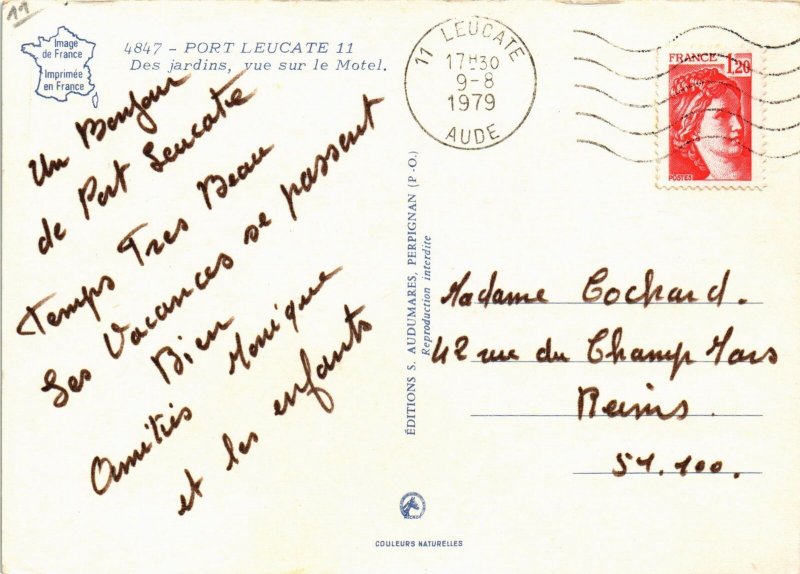 11
Image
de France
Imprimée
en France
4847 - PORT LEUCATE 11
Des jardins, vue sur le Motel.
Un Bonjour
de Port Leucate
Temps Tres Beau
Les Vacances se passent
Bien
Amitiés Monique
et les enfants
11 LEUCATE
17H30
9-8
1979
AUDE
FRANCE
1,20
POSTES
ÉDITIONS S. AUDUMARES, PERPIGNAN (P.-O.)
Reproduction interdite
Madame Cochard.
42 rue du Champ Mars
Reims.
51.100.
COULEURS NATURELLES